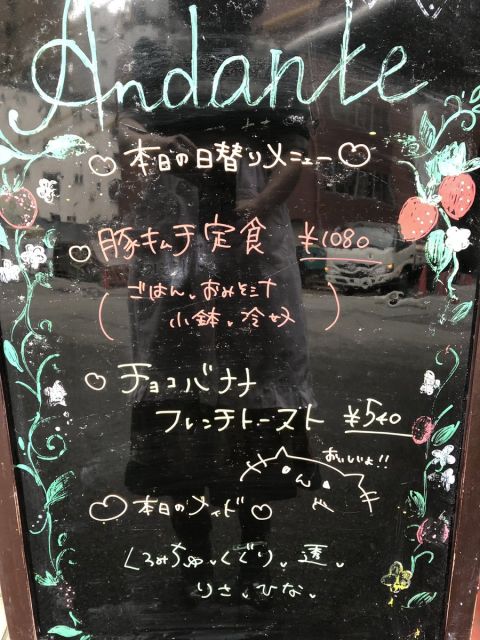 Andante
♡本日の日替りメニュー♡
♡豚キムチ定食 ¥1080
(ごはん、おみそ汁
小鉢、冷奴)
♡チョコバナナ
フレンチトースト ¥540
おいしいよ!!
♡本日のメイド♡
くるみちゅ、くどり、透、
りさ、ひな、